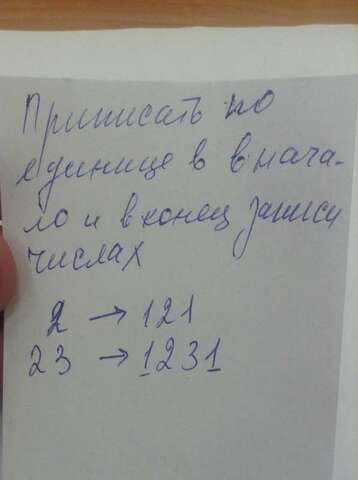 Приписать по
единице в внача-
ло и в конец записи
числах
2 → 121
23 → 1231